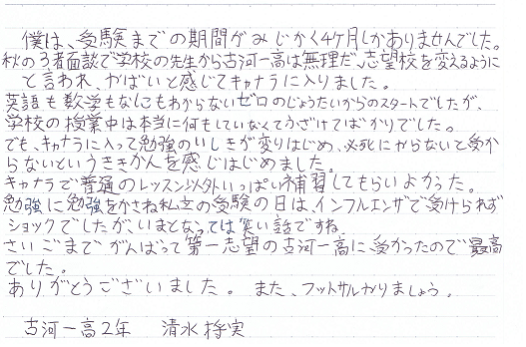 僕は、受験までの期間がみじかく4ケ月しかありませんでした。
秋の3者面談で学校の先生から古河一高は無理だ、志望校を変えるように
と言われ、やばいと感じてキャナラに入りました。
英語も数学もなにもわからないゼロのじょうたいからのスタートでしたが、
学校の授業中は本当に何もしていなくてふざけてばかりでした。
でも、キャナラに入って勉強のいしきが変りはじめ、必死にやらないと受か
らないというききかんを感じはじめました。
キャナラで普通のレッスン以外いっぱい補習してもらいよかった。
勉強に勉強をかさね私立の受験の日は、インフルエンザで受けられず
ショックでしたが、いまとなっては笑い話ですね。
さいごまでがんばって第一志望の古河一高に受かったので最高
でした。
ありがとうございました。また、フットサルやりましょう。
古河一高2年 清水 実